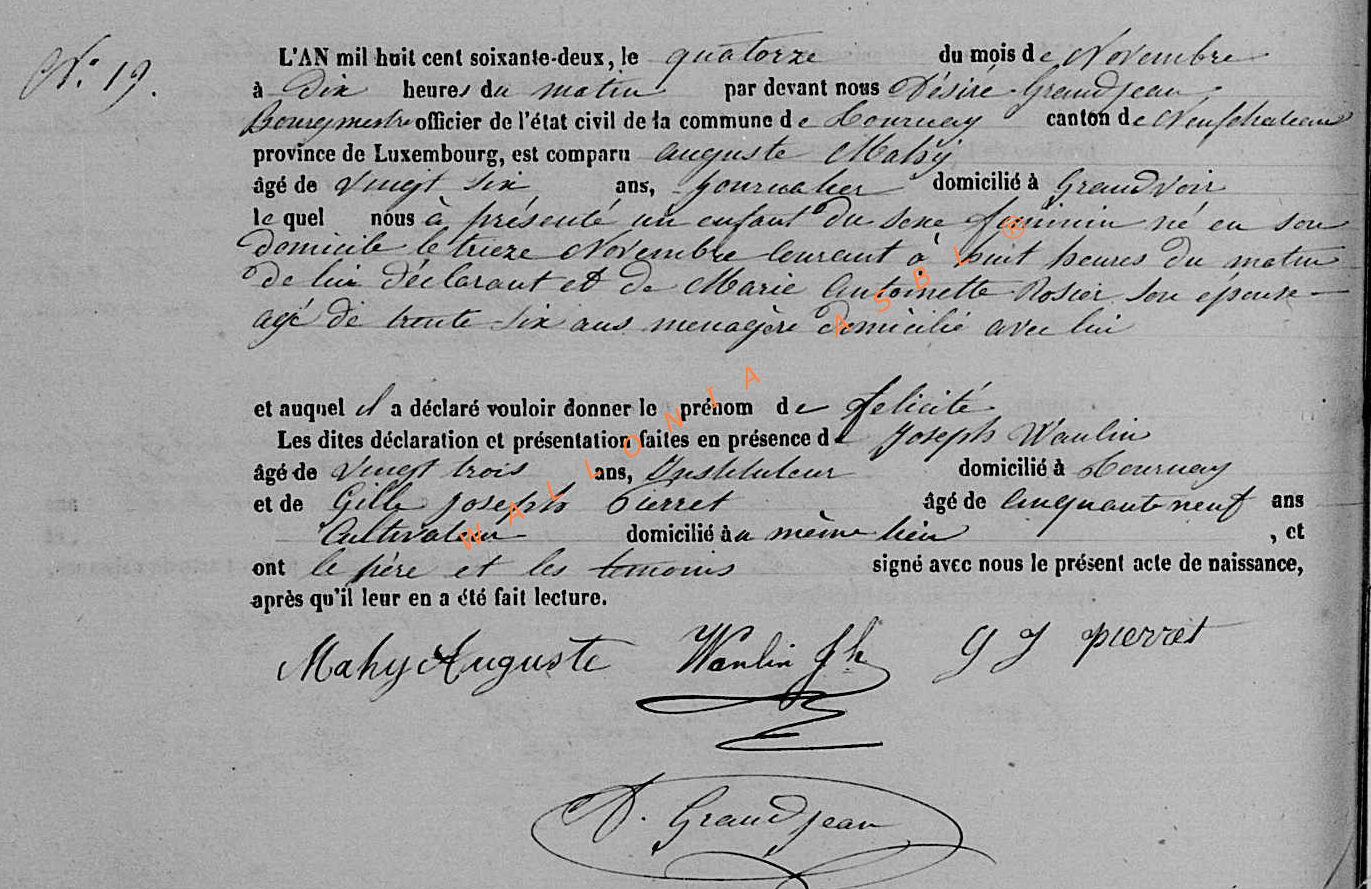 N° 19.
L'AN mil huit cent soixante-deux, le quatorze du mois de Novembre
à Dix heures du matin par devant nous Désiré Grandjean
Bourgmestre officier de l'état civil de la commune de Tournay canton de Neufchateau
province de Luxembourg, est comparu Auguste Mahy
âgé de vingt six ans, journalier domicilié à Grandvoir
le quel nous à présenté un enfant du sexe feminin né en son
domicile le treize Novembre courant à huit heures du matin
de lui déclarant et de Marie Antoinette Rosier son épouse
agé de trente six ans menagère domicilié avec lui
et auquel il a déclaré vouloir donner le prénom de felicité
Les dites déclaration et présentation faites en présence de Joseph Wanlin
âgé de vingt trois ans, Instituteur domicilié à Tournay
et de Gille Joseph Pierret âgé de cinquante neuf ans
Cultivateur domicilié au même lieu , et
ont le père et les temoins signé avec nous le présent acte de naissance,
après qu'il leur en a été fait lecture.
Mahy Auguste Wanlin Jh G J pierret
D. Grandjean
WALLONIA ASBL ®